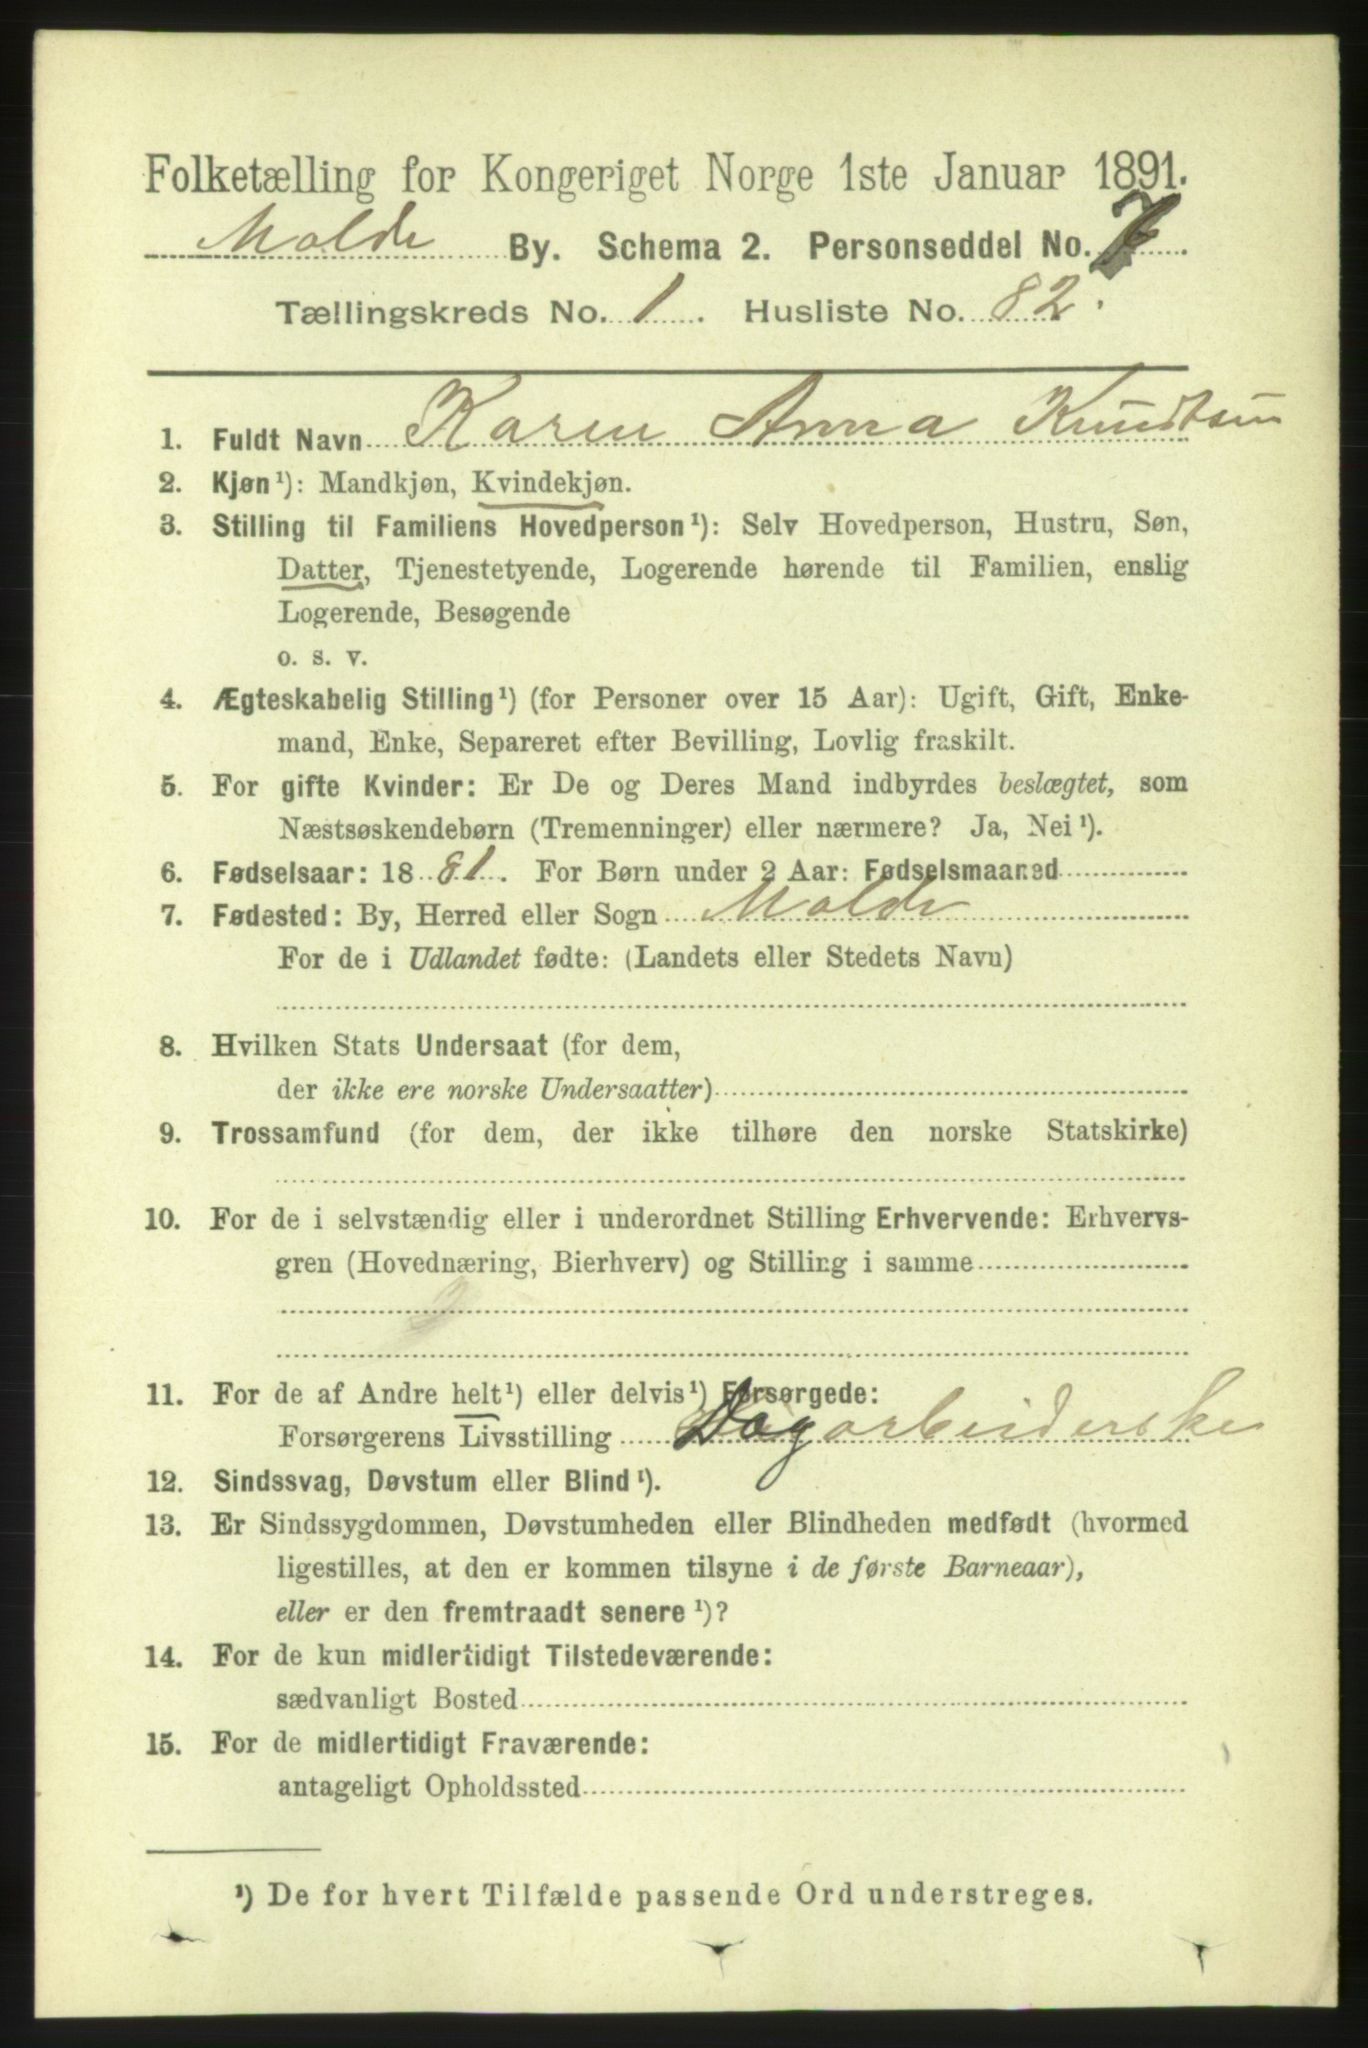 Folketælling for Kongeriget Norge 1ste Januar 1891.
Molde By. Schema 2. Personseddel No. 7
Tællingskreds No. 1. Husliste No. 82.
1. Fuldt Navn Karen Anna Knudtsen
2. Kjøn¹): Mandkjøn, Kvindekjøn.
3. Stilling til Familiens Hovedperson¹): Selv Hovedperson, Hustru, Søn,
Datter, Tjenestetyende, Logerende hørende til Familien, enslig
Logerende, Besøgende
o. s. v.
4. Ægteskabelig Stilling¹) (for Personer over 15 Aar): Ugift, Gift, Enke-
mand, Enke, Separeret efter Bevilling, Lovlig fraskilt.
5. For gifte Kvinder: Er De og Deres Mand indbyrdes beslægtet, som
Næstsøskendebørn (Tremenninger) eller nærmere? Ja, Nei¹).
6. Fødselsaar: 1881. For Børn under 2 Aar: Fødselsmaaned
7. Fødested: By, Herred eller Sogn Molde
For de i Udlandet fødte: (Landets eller Stedets Navn)
8. Hvilken Stats Undersaat (for dem,
der ikke ere norske Undersaatter)
9. Trossamfund (for dem, der ikke tilhøre den norske Statskirke)
10. For de i selvstændig eller i underordnet Stilling Erhvervende: Erhvervs-
gren (Hovednæring, Bierhverv) og Stilling i samme
11. For de af Andre helt¹) eller delvis¹) Forsørgede:
Forsørgerens Livsstilling Dagarbeiderske
12. Sindssvag, Døvstum eller Blind¹).
13. Er Sindssygdommen, Døvstumheden eller Blindheden medfødt (hvormed
ligestilles, at den er kommen tilsyne i de første Barneaar),
eller er den fremtraadt senere¹)?
14. For de kun midlertidigt Tilstedeværende:
sædvanligt Bosted
15. For de midlertidigt Fraværende:
antageligt Opholdssted
¹) De for hvert Tilfælde passende Ord understreges.